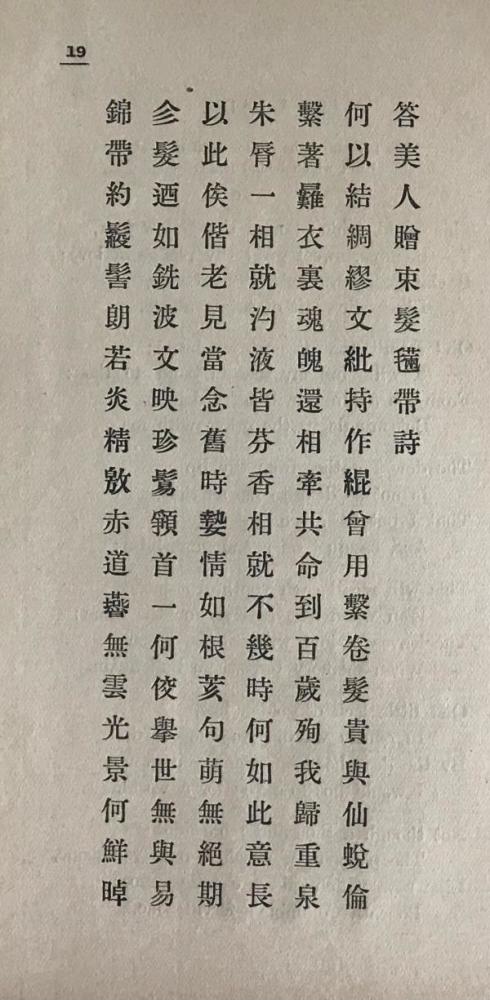 19
答美人贈束髮帶詩
何以結綢繆文紕持作緄曾用繫卷髮貴與仙蛻倫
繫著衣裏魂魄還相牽共命到百歲殉我歸重泉
朱脣一相就汋液皆芬香相就不幾時何如此意長
以此俟偕老見當念舊時情如根荄句萌無絕期
㐱髮迺如銑波文映珍鬄首一何佼舉世無與易
錦帶約髻朗若炎精敫赤道無雲光景何鮮晫